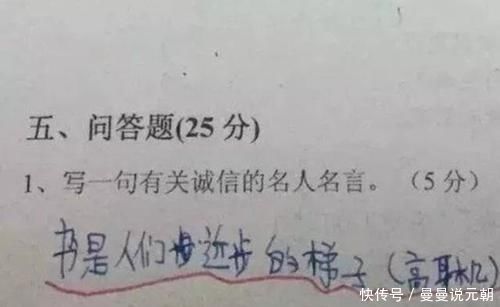 五、问答题(25分)
1、写一句有关诚信的名人名言。（5分）
书是人们进步的梯子（高耴机）
快传号 / 曼曼说元朝